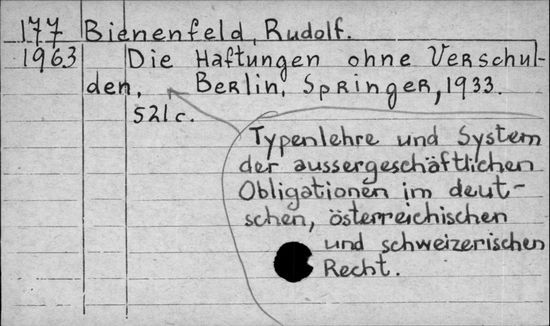 177 Bienenfeld, Rudolf.
1963 Die Haftungen ohne Verschul-
den, Berlin, Springer, 1933.
521 c.
Typenlehre und System
der aussergeschäftlichen
Obligationen im deut-
schen, österreichischen
und schweizerischen
Recht.